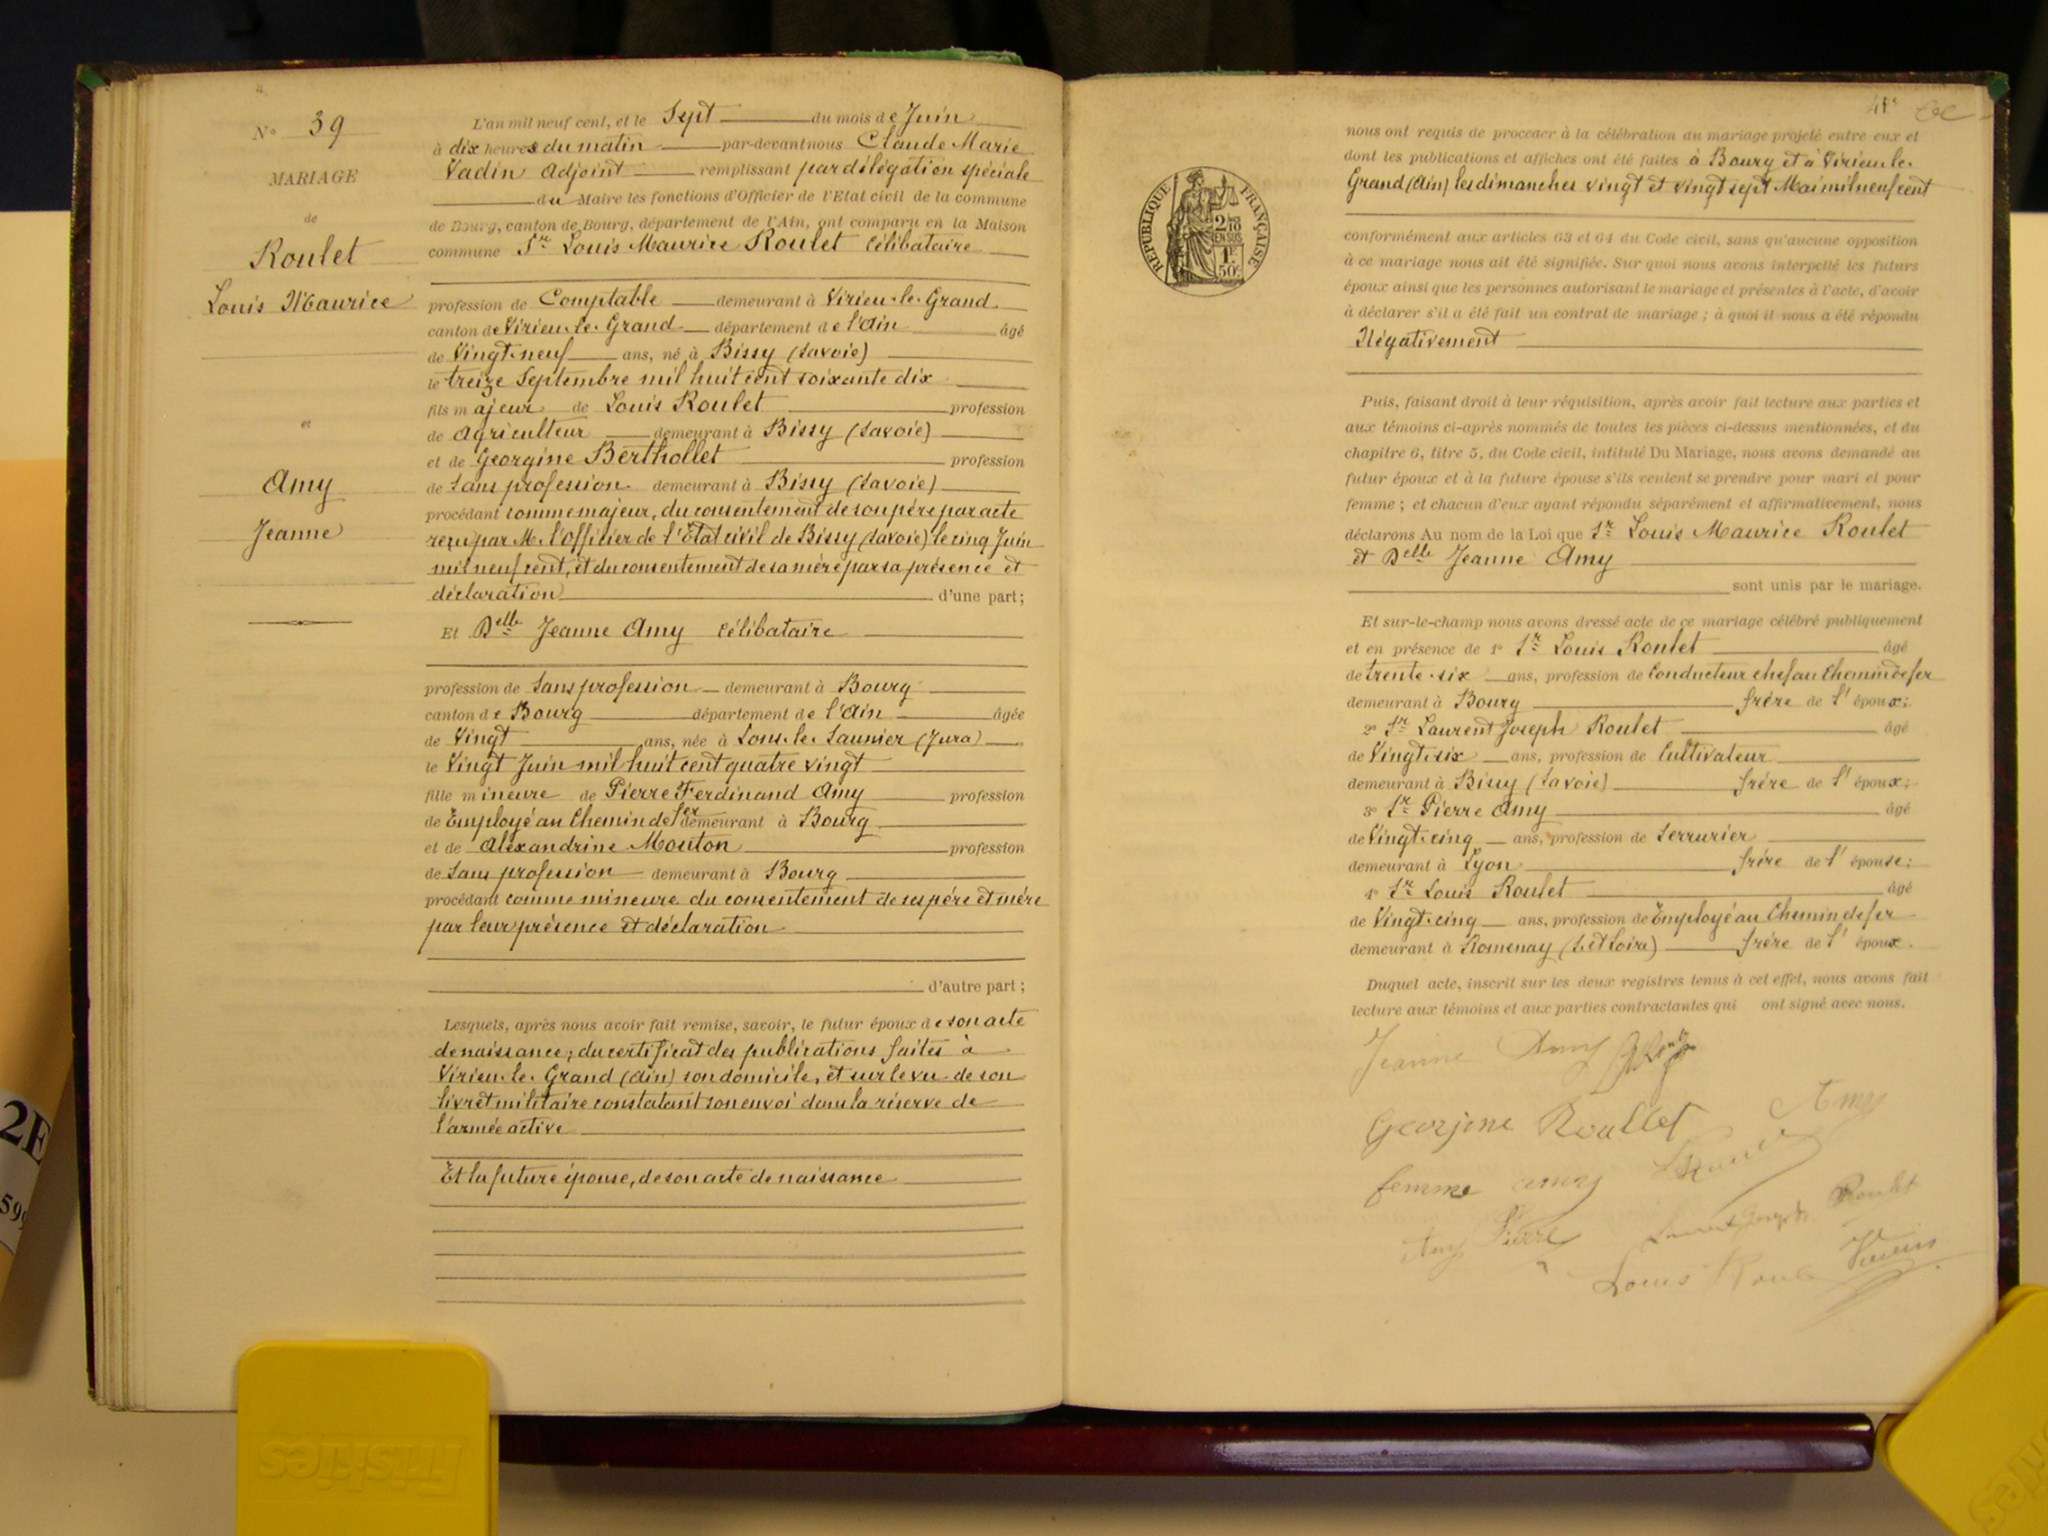 Nº 39
MARIAGE
de
Roulet
Louis Maurice
et
Amy
Jeanne
L'an mil neuf cent, et le Sept du mois de Juin
à dix heures du matin par-devant nous Claude Marie
Vadin Adjoint remplissant par délégation spéciale
du Maire les fonctions d'Officier de l'Etat civil de la commune
de Bourg, canton de Bourg, département de l'Ain, ont comparu en la Maison
commune Sr Louis Maurice Roulet Célibataire
profession de Comptable demeurant à Virieu-le-Grand
canton de Virieu-le-Grand département de l'Ain âgé
de Vingt-neuf ans, né à Bissy (Savoie)
le treize Septembre mil huit cent soixante dix
fils majeur de Louis Roulet profession
de Agriculteur demeurant à Bissy (Savoie)
et de Georgine Berthollet profession
de Sans profession demeurant à Bissy (Savoie)
procédant comme majeur, du consentement de son père par acte
reçu par M. l'Officier de l'Etat civil de Bissy (Savoie) le cinq Juin
mil neuf cent, et du consentement de sa mère par sa présence et
déclaration d'une part;
Et Delle Jeanne Amy Célibataire
profession de Sans profession demeurant à Bourg
canton de Bourg département de l'Ain âgée
de Vingt ans, née à Lons-le-Saunier (Jura)
le Vingt Juin mil huit cent quatre vingt
fille mineure de Pierre Ferdinand Amy profession
de Employé au Chemin de fer demeurant à Bourg
et de Alexandrine Mouton profession
de Sans profession demeurant à Bourg
procédant comme mineure du consentement de ses père et mère
par leur présence et déclaration
d'autre part;
Lesquels, après nous avoir fait remise, savoir, le futur époux de son acte
de naissance; du certificat des publications faites à
Virieu-le-Grand (Ain) son domicile, et sur le vu de son
livret militaire constatant son envoi dans la réserve de
l'armée active
Et la future épouse, de son acte de naissance
41
RÉPUBLIQUE FRANÇAISE
2/10
EN SUS
1F
50c
nous ont requis de procéder à la célébration du mariage projeté entre eux et
dont les publications et affiches ont été faites à Bourg et à Virieu-le-
Grand (Ain) les dimanches vingt et vingt sept Mai mil neuf cent
conformément aux articles 63 et 64 du Code civil, sans qu'aucune opposition
à ce mariage nous ait été signifiée. Sur quoi nous avons interpellé les futurs
époux ainsi que les personnes autorisant le mariage et présentes à l'acte, d'avoir
à déclarer s'il a été fait un contrat de mariage; à quoi il nous a été répondu
Négativement
Puis, faisant droit à leur réquisition, après avoir fait lecture aux parties et
aux témoins ci-après nommés de toutes les pièces ci-dessus mentionnées, et du
chapitre 6, titre 5, du Code civil, intitulé Du Mariage, nous avons demandé au
futur époux et à la future épouse s'ils veulent se prendre pour mari et pour
femme; et chacun d'eux ayant répondu séparément et affirmativement, nous
déclarons Au nom de la Loi que Sr Louis Maurice Roulet
et Delle Jeanne Amy
sont unis par le mariage.
Et sur-le-champ nous avons dressé acte de ce mariage célébré publiquement
et en présence de 1º Sr Louis Roulet âgé
de trente-six ans, profession de Conducteur chef au Chemin de fer
demeurant à Bourg frère de l'époux;
2º Sr Laurent Joseph Roulet âgé
de Vingt-six ans, profession de Cultivateur
demeurant à Bissy (Savoie) frère de l'époux;
3º Sr Pierre Amy âgé
de Vingt-cinq ans, profession de Serrurier
demeurant à Lyon frère de l'épouse;
4º Sr Louis Roulet âgé
de Vingt-cinq ans, profession de Employé au Chemin de fer
demeurant à Romenay (S et Loire) frère de l'époux.
Duquel acte, inscrit sur les deux registres tenus à cet effet, nous avons fait
lecture aux témoins et aux parties contractantes qui ont signé avec nous.
Jeanne Amy
Georjine Roullet Amy
femme amy
Amy Pierre Laurent Joseph Roulet
Louis Roulet
2E
59
frisktes